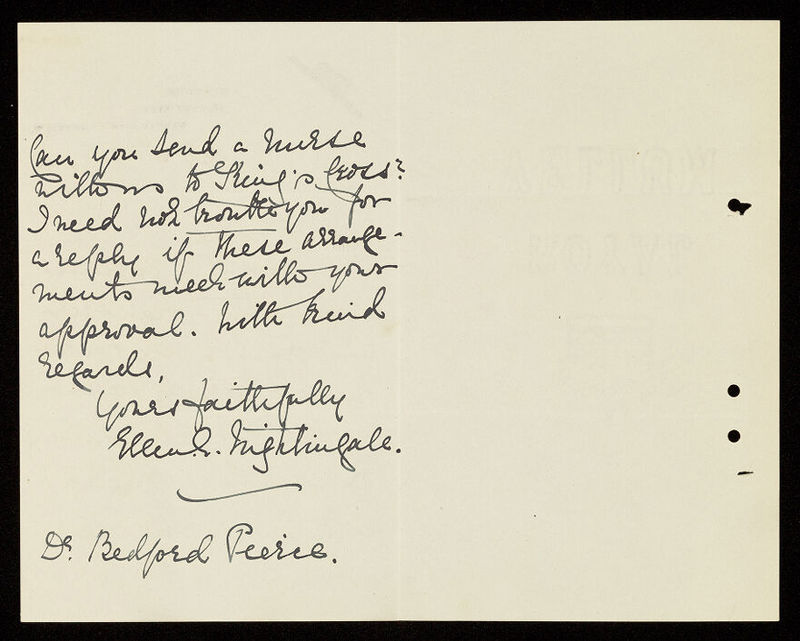 Can you send a nurse
with us to King's Cross?
I need not trouble you for
a reply if these arrange-
ments meet with your
approval. With kind
regards,
Yours faithfully
Ellen E. Nightingale.
Dr. Bedford Pierce.